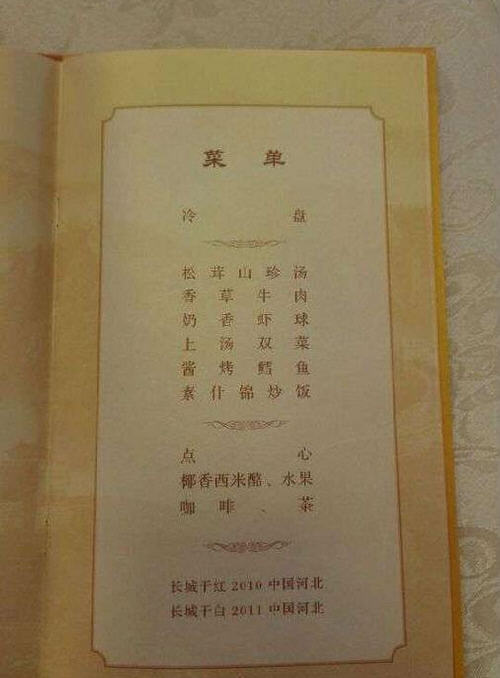 菜单
冷盘
松茸山珍汤
香草牛肉
奶香虾球
上汤双菜
酱烤鳕鱼
素什锦炒饭
点心
椰香西米酪、水果
咖啡、茶
长城干红 2010 中国河北
长城干白 2011 中国河北